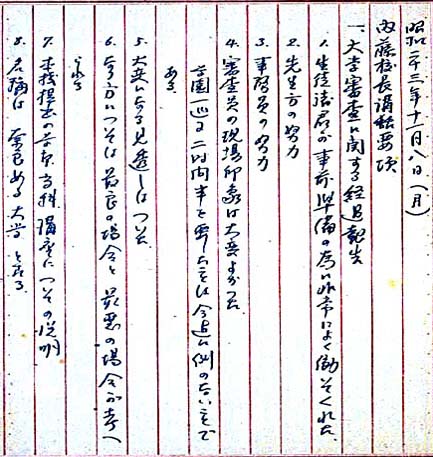 昭和二十三年十一月八日（月）
内藤校長講話要項
一、大学審査に関する経過報告
1. 生徒諸君が事前準備の為に非常によく働いてくれた
2. 先生方の努力
3. 事務員の努力
4. 審査員の現場印象は大変よかった
学園一巡に二時間半を要したことは今迄に例のないことで
ある
5. 大学になる見透しはついた
6. 方については最良の場合と最悪の場合が考へ
られる
7. 本校提出の学科 講座についての説明
8. 名称は 大学となる